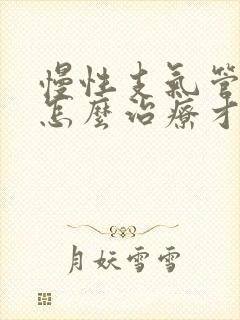 慢性支氣管
怎麼治療才
月妖雪雪